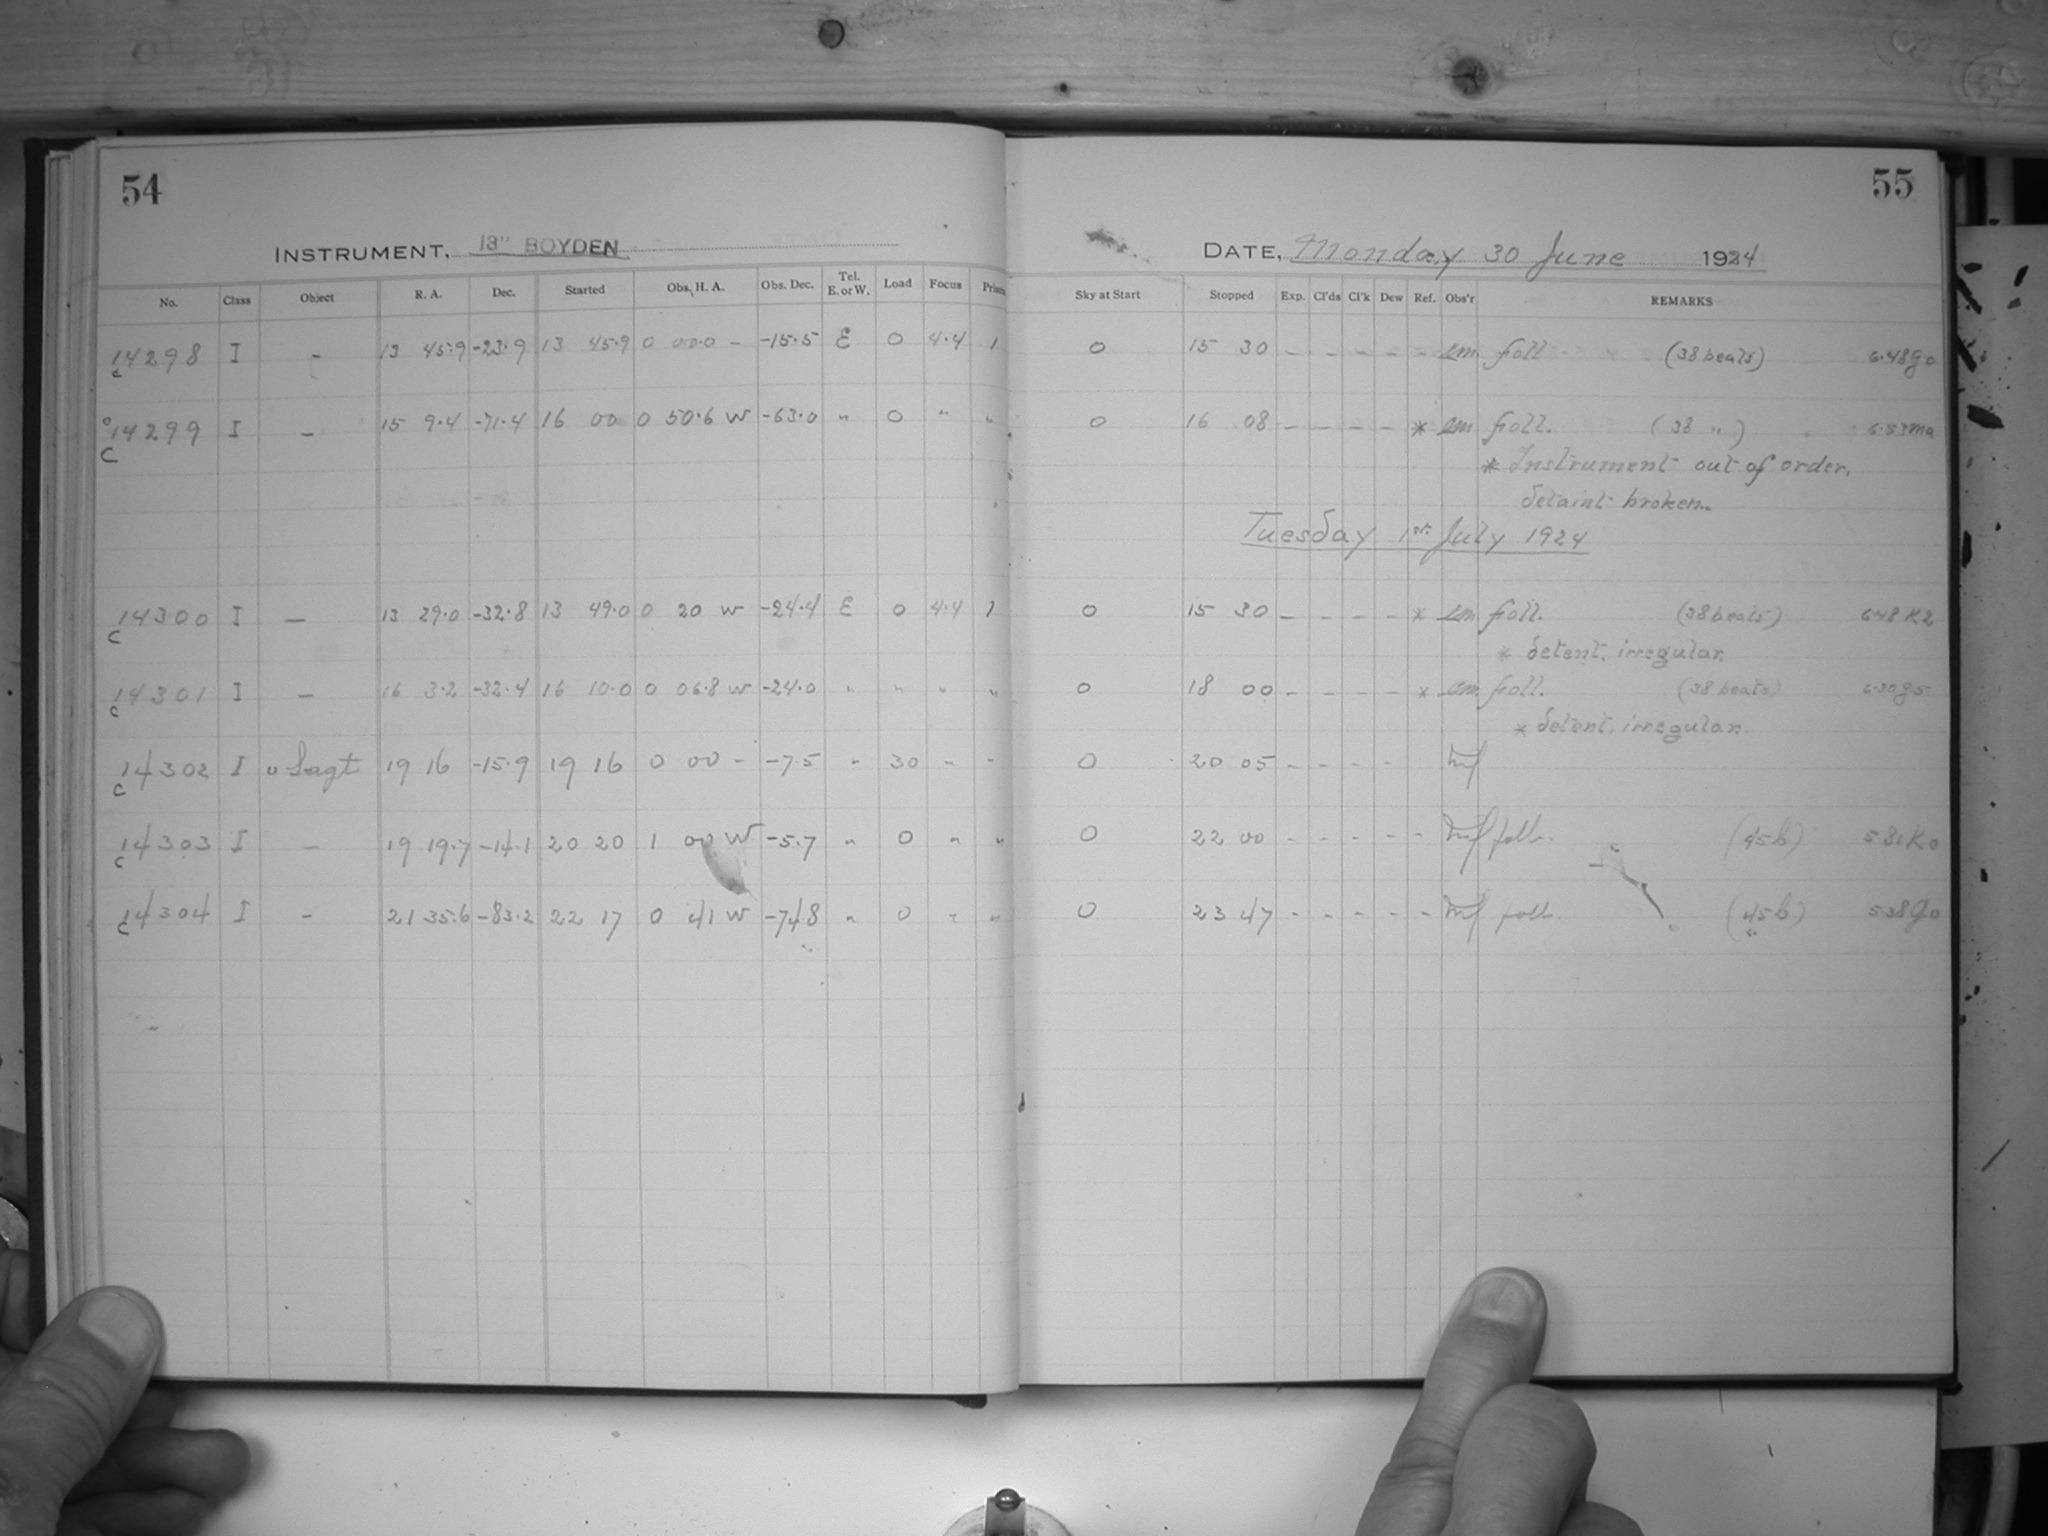 54
INSTRUMENT, 13" BOYDEN
No. Class Object R. A. Dec. Started Obs. H. A. Obs. Dec. Tel. E. or W. Load Focus Prism
14298 I - 13 45.9 -23.9 13 45.9 0 00.0 - -15.5 E 0 4.4 1
c
o14299 I - 15 9.4 -71.4 16 00 0 50.6 W -63.0 " 0 " "
C
14300 I - 13 29.0 -32.8 13 49.0 0 20 W -24.4 E 0 4.4 1
c
14301 I - 16 3.2 -32.4 16 10.0 0 06.8 W -24.0 " " " "
c
14302 I υ Sagt 19 16 -15.9 19 16 0 00 - -7.5 " 30 " "
c
14303 I - 19 19.7 -14.1 20 20 1 00 W -5.7 " 0 " "
c
14304 I - 21 35.6 -83.2 22 17 0 41 W -74.8 " 0 " "
c
55
DATE, Monday 30 June 1924
Sky at Start Stopped Exp. Cl'ds Cl'k Dew Ref. Obs'r REMARKS
0 15 30 - - - - - em foll. (38 beats) 6.48 g0
0 16 08 - - - - * em foll. (38 ") 6.53 ma
* Instrument out of order.
detaint broken.
Tuesday 1st July 1924
0 15 30 - - - - * em foll. (38 beats) 6.48 K2
* detent. irregular.
0 18 00 - - - - * em foll. (38 beats) 6.30 g5
* detent. irregular.
0 20 05 - - - -
0 22 00 - - - - - foll. (45 b) 5.81 K0
0 23 47 - - - - - foll. (45 b) 5.38 g0